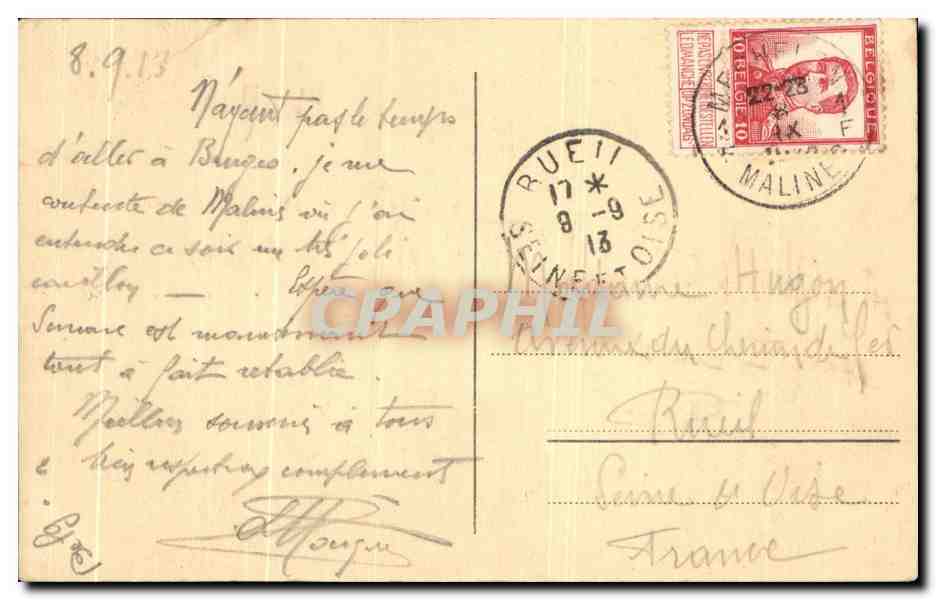 8.9.13
N'ayant pas le temps
d'aller à Bruges, je me
contente de Malines où j'ai
entendu ce soir un très joli
carillon — Espère que
Simone est maintenant
tout à fait rétablie.
Meilleurs souvenirs à tous
& bien respectueux compliments
NE PAS LIVRER LE DIMANCHE
NIET BESTELLEN OP ZONDAG
BELGIE 10
BELGIQUE 10
22-23
IX
1
F
MALINE
RUEIL
17 *
9 -9
13
SEINE ET OISE
CPAPHIL
Madame Hugon
Avenue du Chemin de fer
Rueil
Seine & Oise
France